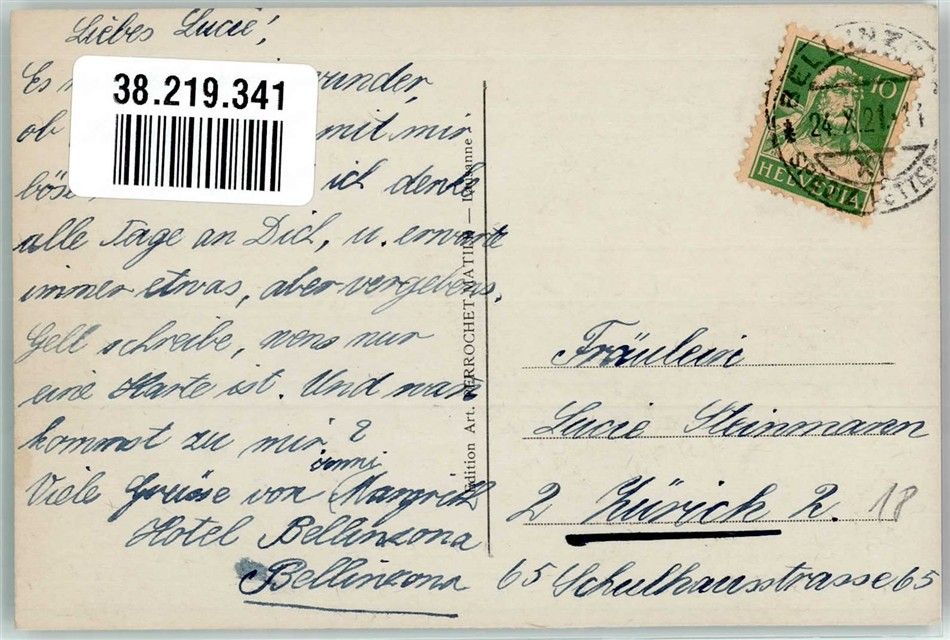 Liebes Lucie!
Es wunder,
ob mit mir
böse, ich denke
alle Tage an Dich, u. erwarte
immer etwas, aber vergebens.
Gell schreibe, wens nur
eine Karte ist. Und wan
kommst zu mir?
Viele Grüsse von Margrith
Hotel Bellinzona
Bellinzona
38.219.341
Edition Art. PERROCHET-MATILE — Lausanne
10
HELVETIA
BELLINZONA
24.X.21
Fräulein
Lucie Steinmann
2 Zürich 2. 18
65 Schulhausstrasse 65